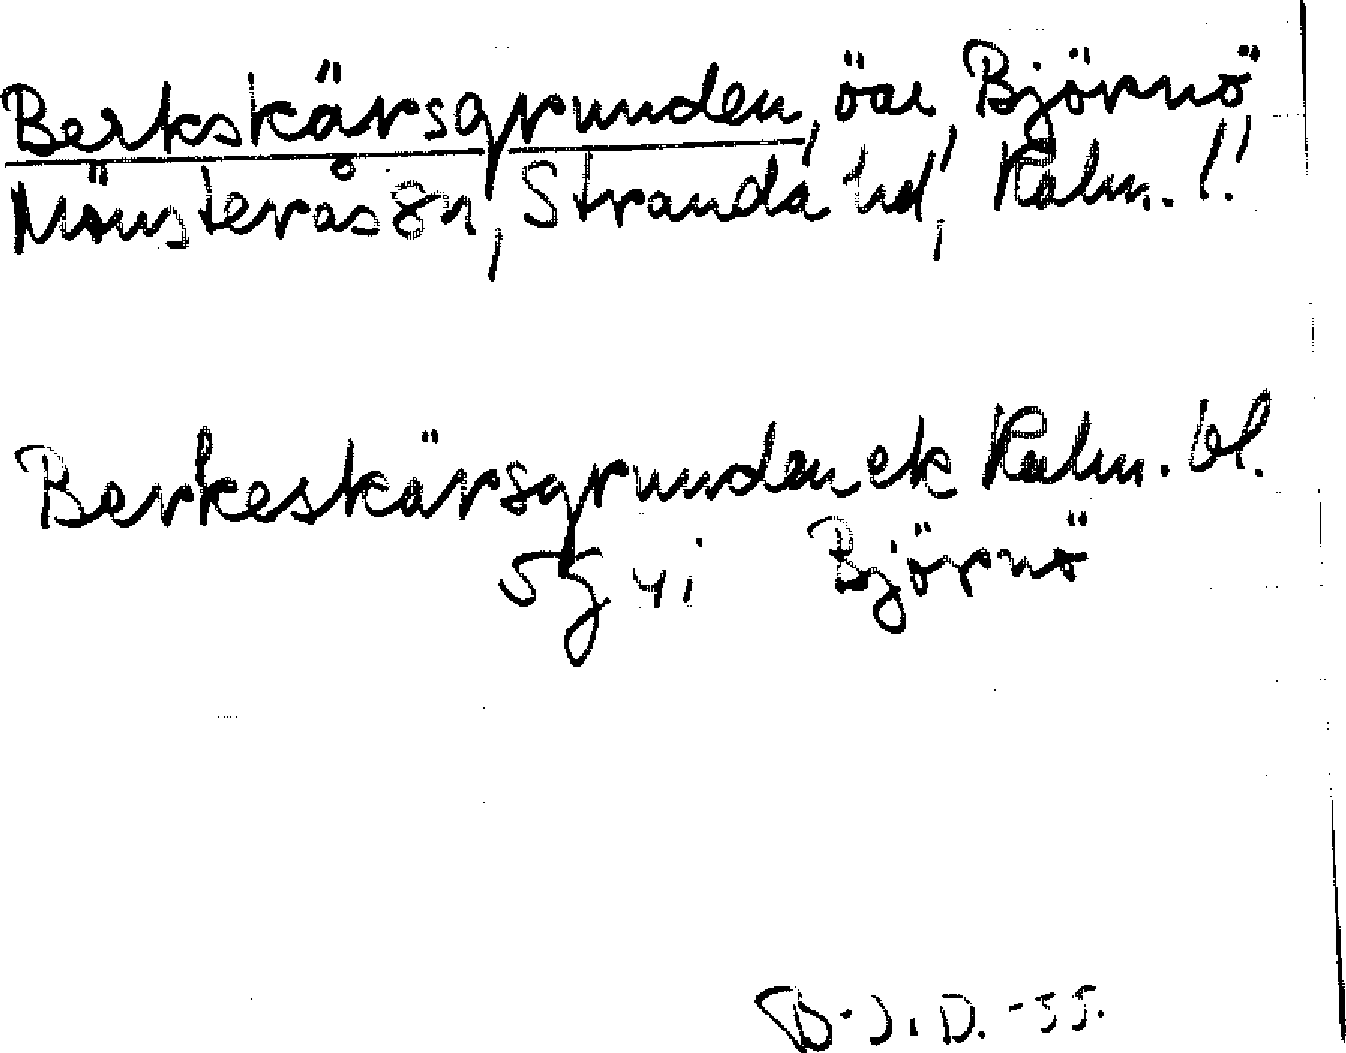 Berkskärsgrunden, öar, Björnö,
Mönsterås sn, Stranda hd, Kalm. l.
Berkeskärsgrunden ek Kalm. bl.
5g4i Björnö
B.J.D. -55.